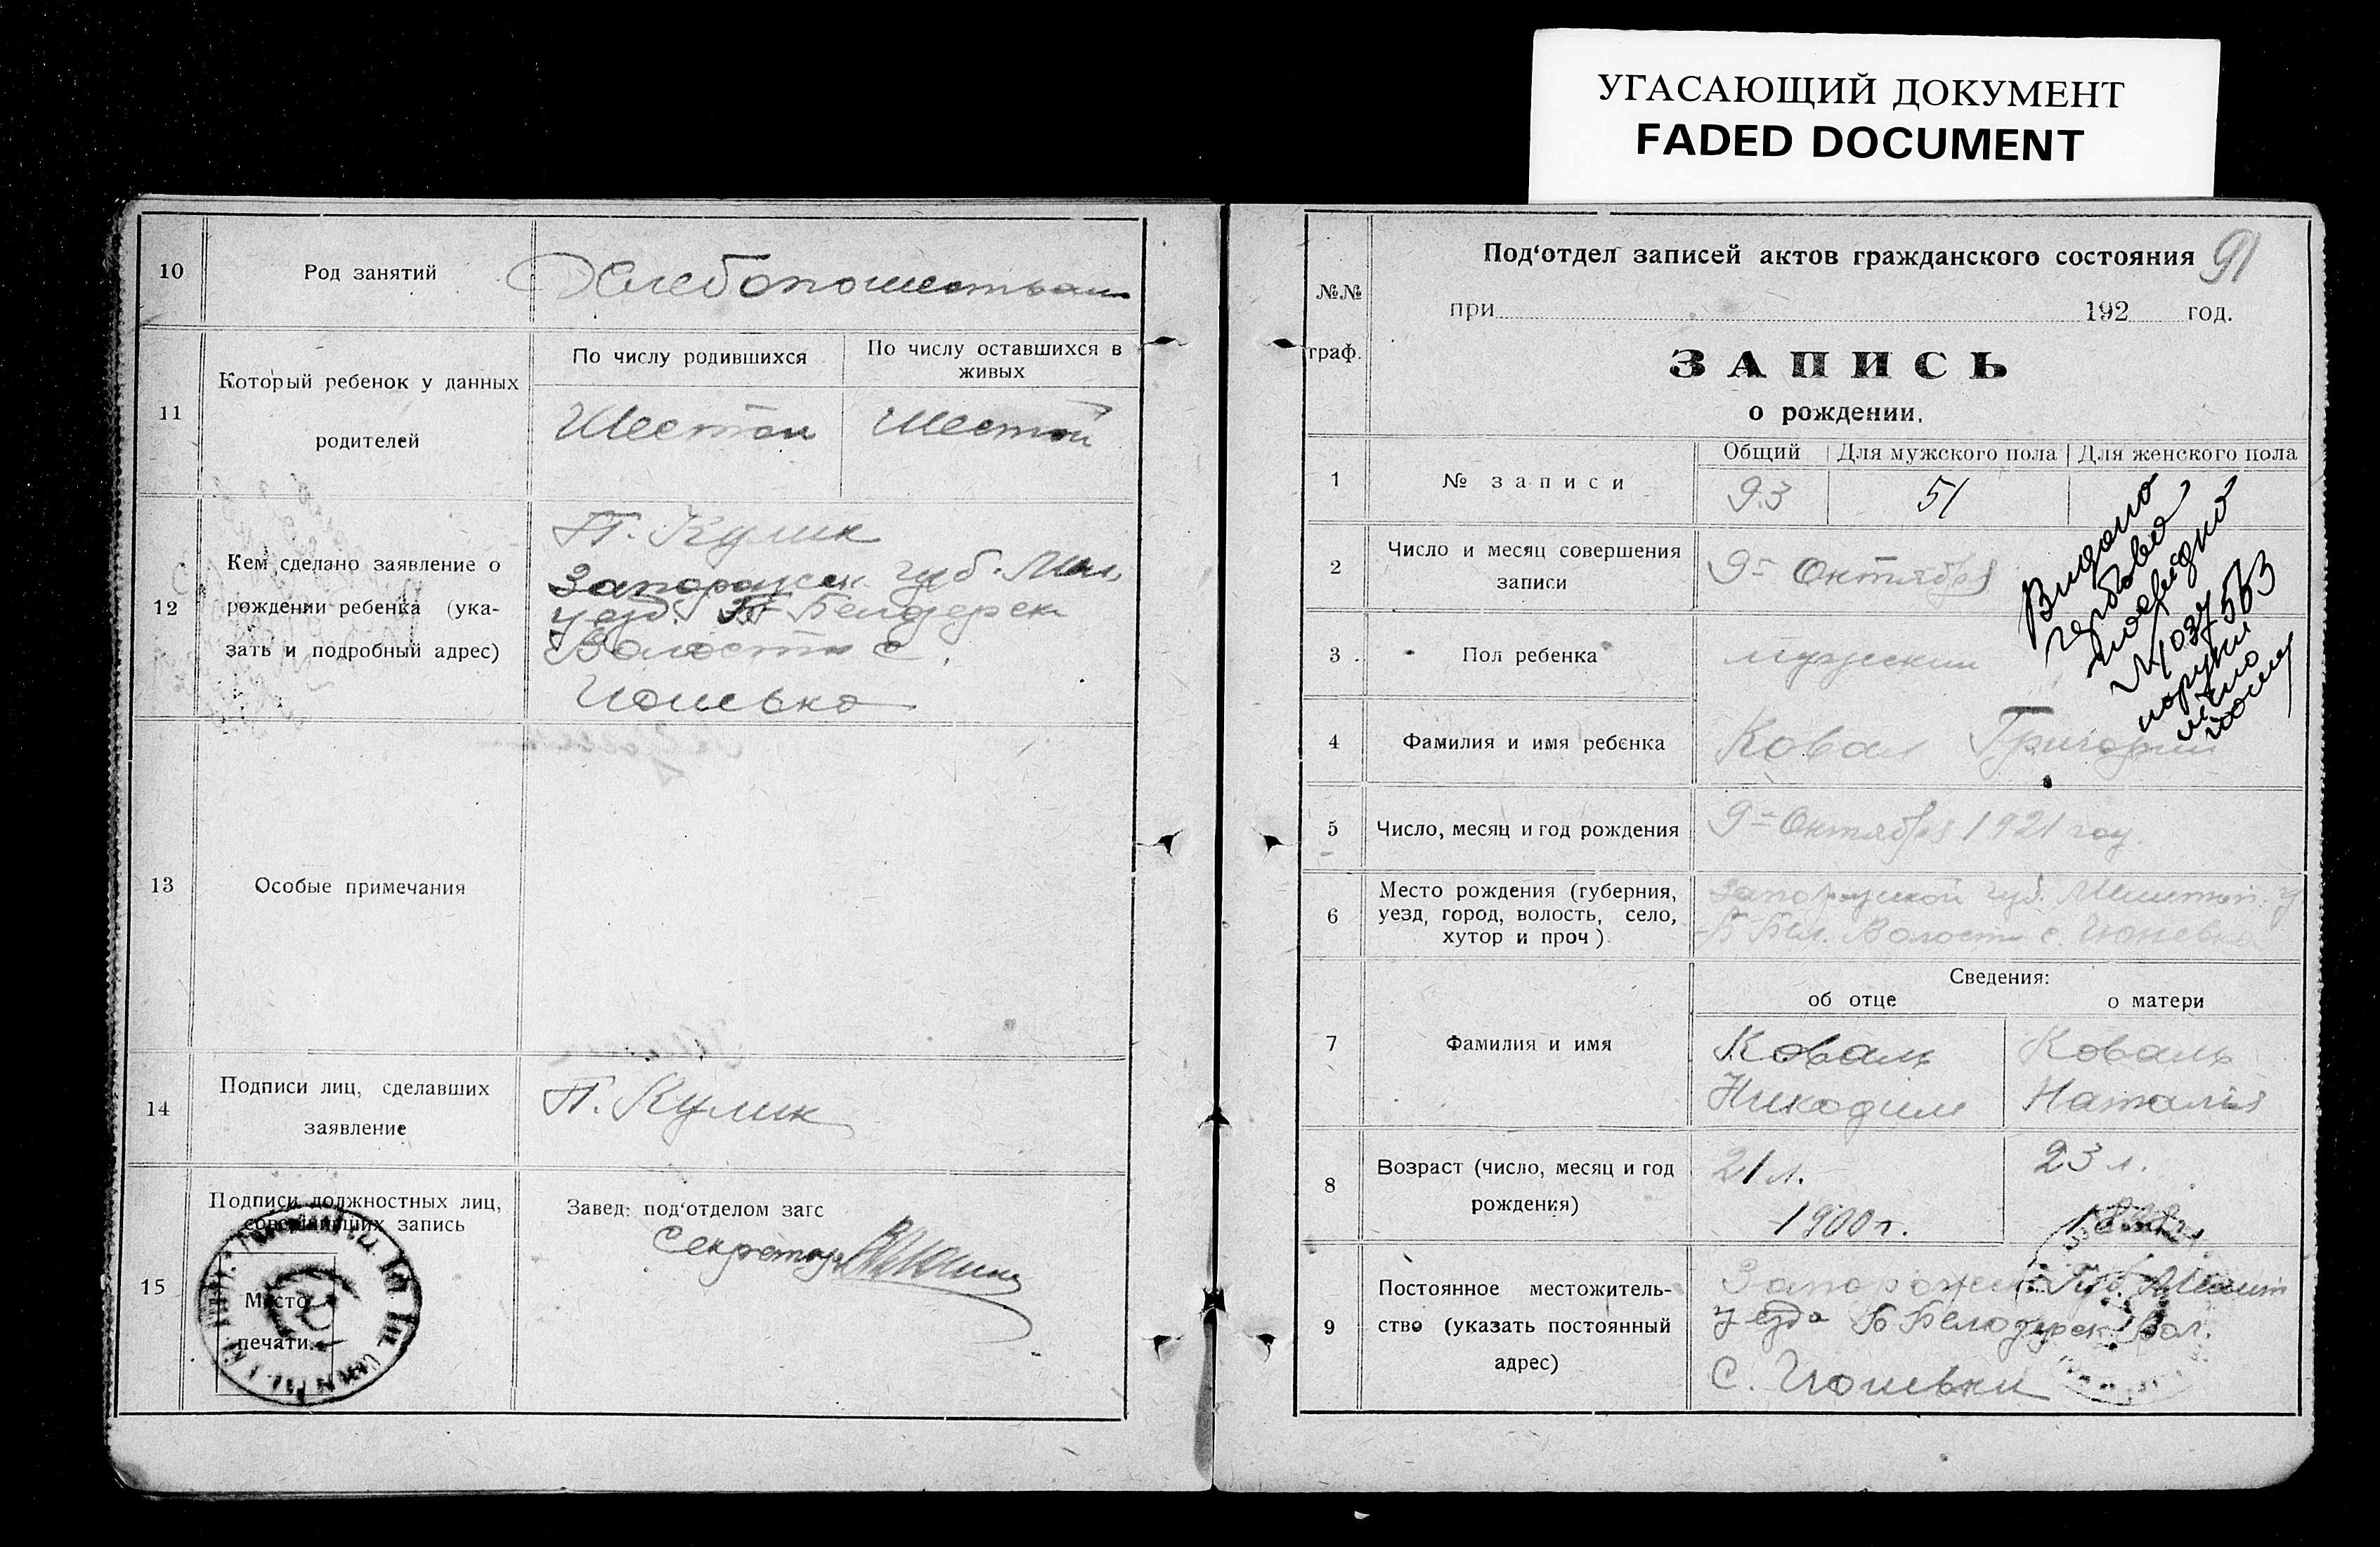 УГАСАЮЩИЙ ДОКУМЕНТ
FADED DOCUMENT
10
Род занятий
Хлебопашеством
11
Который ребенок у данных
родителей
По числу родившихся
По числу оставшихся в
живых
Шестой
Шестой
12
Кем сделано заявление о
рождении ребенка (ука-
зать и подробный адрес)
П. Кулик
Запорожск. губ. Мел.
уезд. Б Белозерск
Волости с.
13
Особые примечания
14
Подписи лиц, сделавших
заявление
П. Кулик
15
Подписи должностных лиц,
совершивших запись
Место
печати.
Завед: под‘отделом загс
Секретарь
№№
граф.
Под‘отдел записей актов гражданского состояния
91
при 192 год.
ЗАПИСЬ
о рождении.
1
№ записи
Общий
Для мужского пола
Для женского пола
93
51
2
Число и месяц совершения
записи
9 Октября
3
Пол ребенка
мужский
Видано
№ 037563
4
Фамилия и имя ребенка
Ковал Григорий
5
Число, месяц и год рождения
9 Октября 1921 году.
6
Место рождения (губерния,
уезд, город, волость, село,
хутор и проч).
Запорожской губ. Мелитоп. у
Б Бел. Волости с.
Сведения:
об отце
о матери
7
Фамилия и имя
Коваль
Никодим
Коваль
Наталия
8
Возраст (число, месяц и год
рождения)
21 л.
1900 г.
23 л.
9
Постоянное местожитель-
ство (указать постоянный
адрес)
Запорожск Губ. Мелит
уезда Б Белозерск Вол.
с.